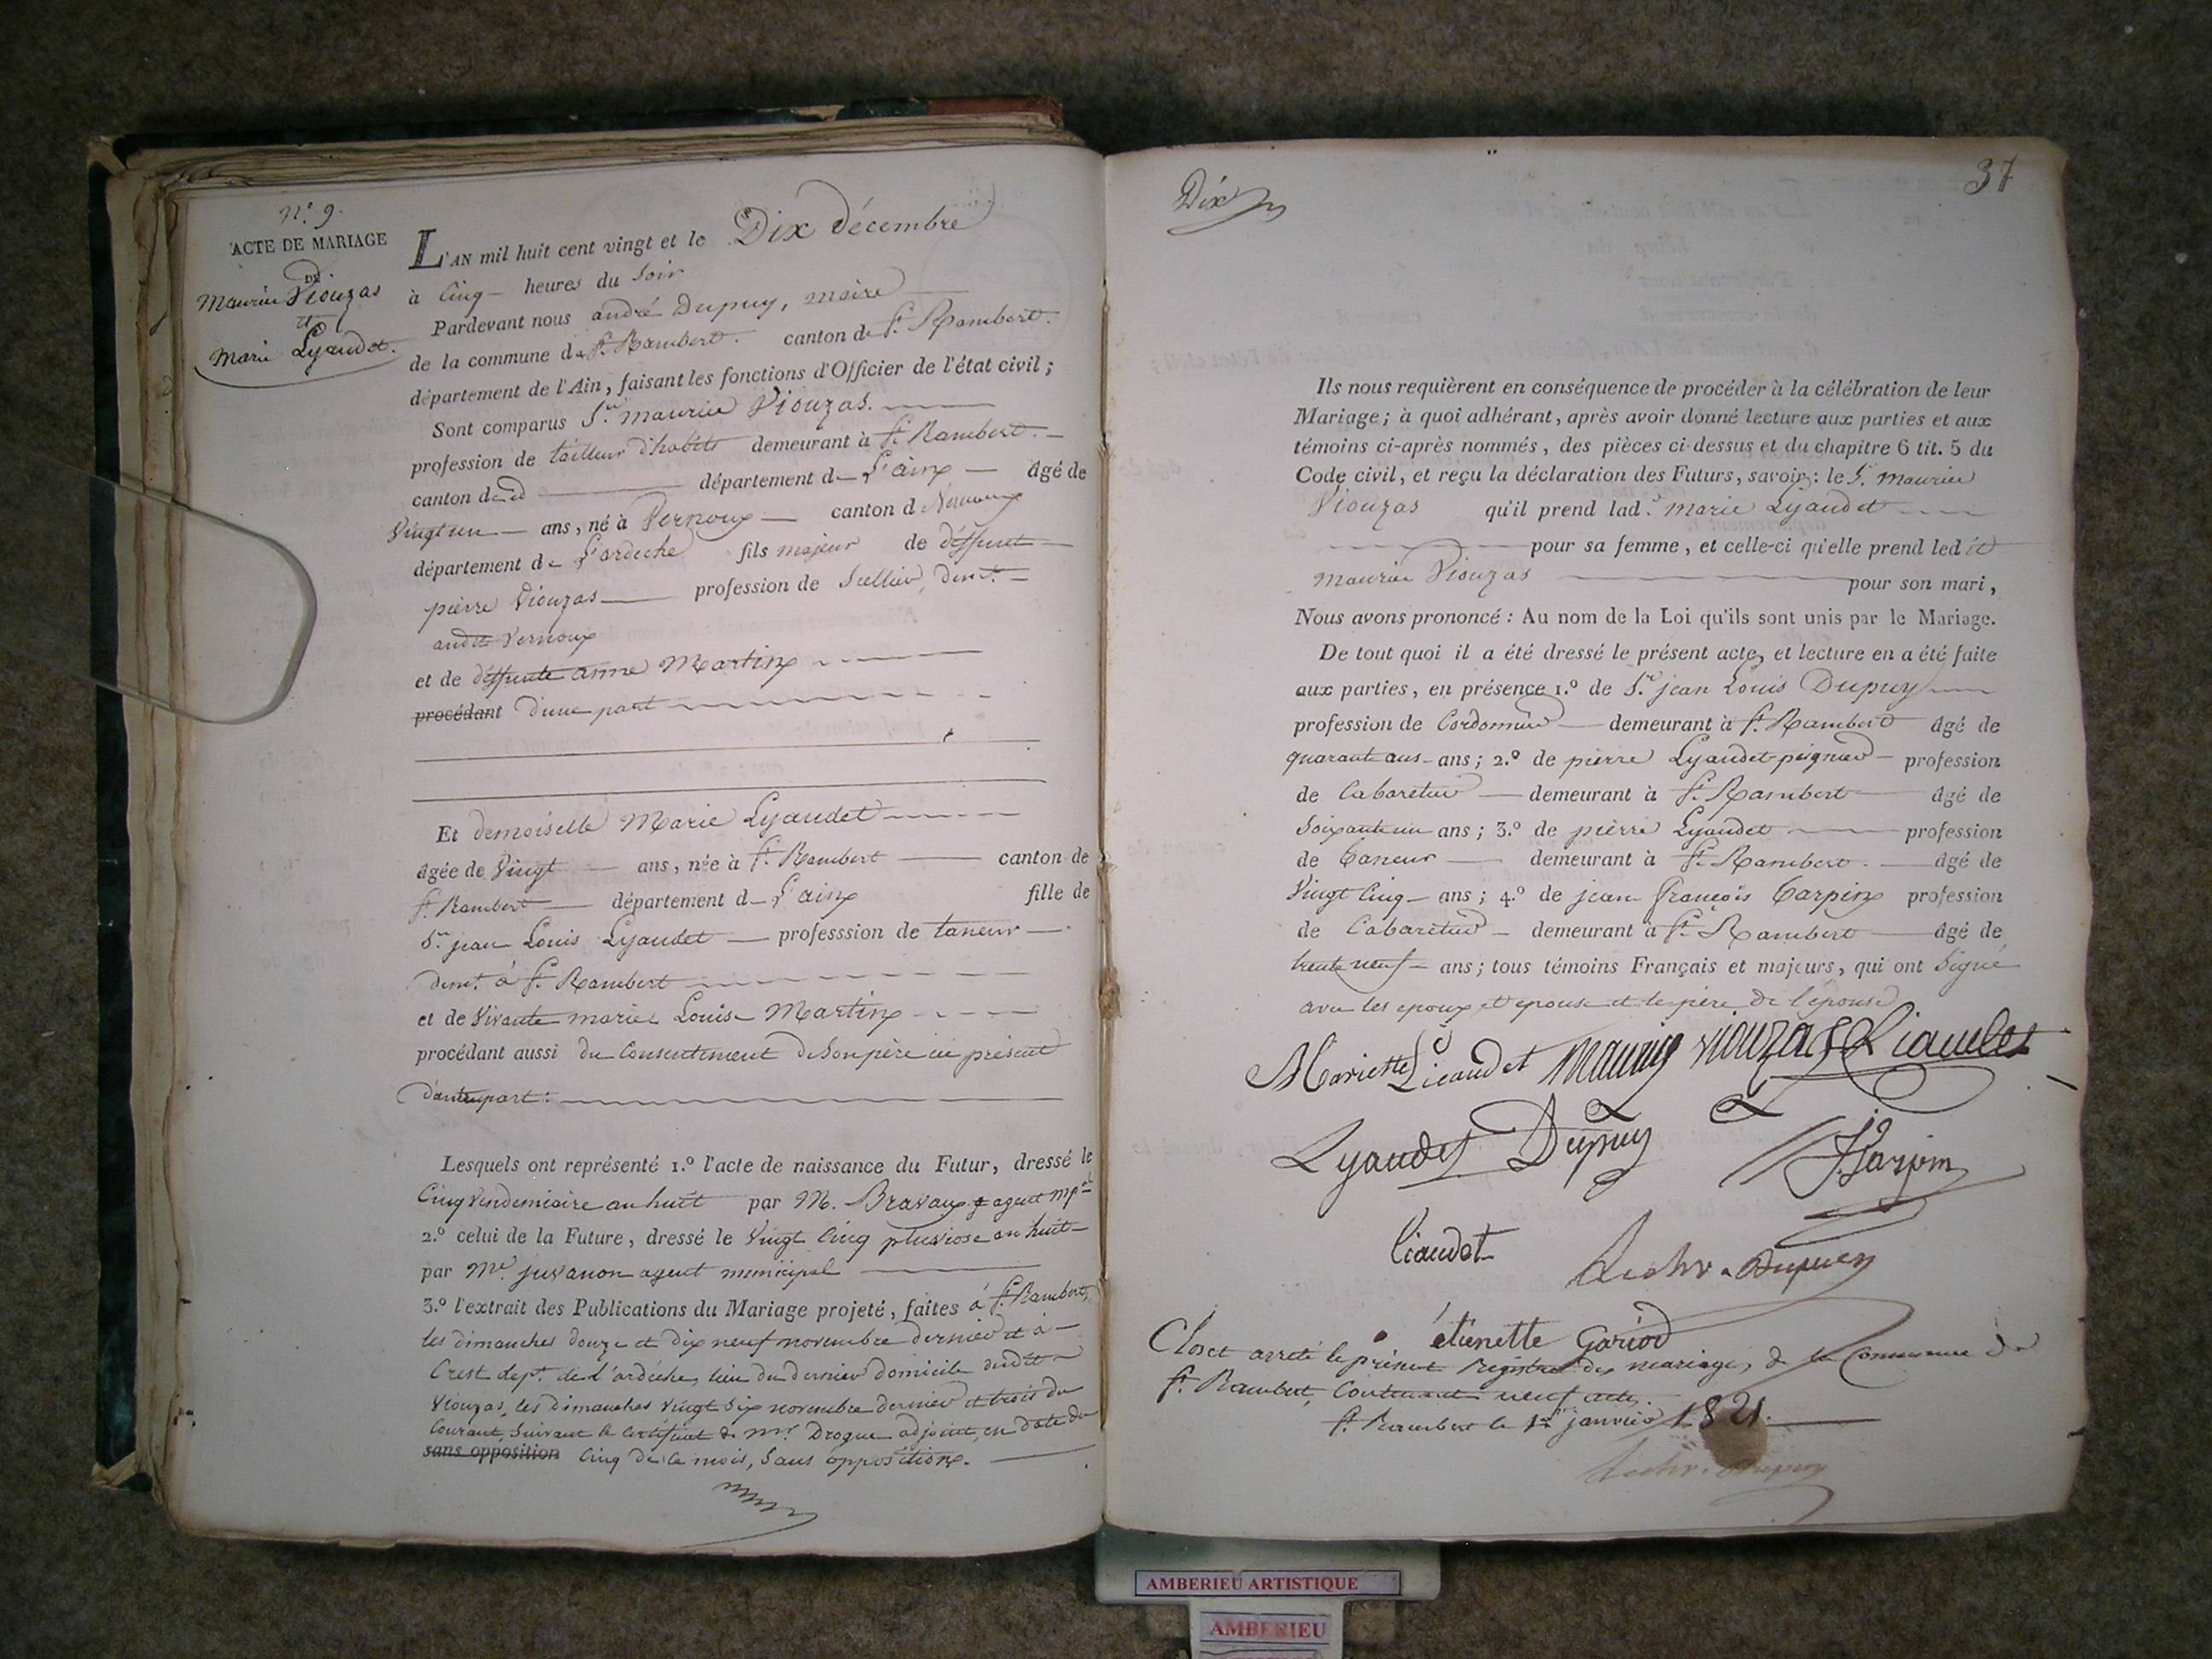 N.º 9.
ACTE DE MARIAGE
DE
Maurice Viouzas
et
Marie Lyaudet.
L'AN mil huit cent vingt et le Dix décembre
à Cinq heures du Soir
Pardevant nous andré Dupuy, maire
de la commune de St. Rambert. canton de St. Rambert.
département de l'Ain, faisant les fonctions d'Officier de l'état civil ;
Sont comparus Sr. maurice Viouzas.
profession de tailleur d'habits demeurant à St. Rambert.
canton de id département de L'ain agé de
Vingt un ans, né à Vernoux canton d
département de L'ardeche fils majeur de deffunt
pierre Viouzas profession de Sellier, demt.
audit Vernoux
et de deffunte anne Martin
procédant D'une part
Et demoiselle Marie Lyaudet
agée de Vingt ans, née à St. Rambert canton de
St. Rambert département de L'ain fille de
Sr. jean Louis Lyaudet professsion de taneur
demt. à St. Rambert
et de Vivante marie Louise Martin
procédant aussi du Consentement de Son père ici présent
D'autre part :
Lesquels ont représenté 1.º l'acte de naissance du Futur, dressé le
Cinq Vendemiaire an huit par M. Bravaux agent mpal
2.º celui de la Future, dressé le Vingt Cinq pluviose an huit
par Mr. juvanon agent municipal
3.º l'extrait des Publications du Mariage projeté, faites à St. Rambert,
les dimanches douze et dix neuf novembre dernier et à
Crest dept. de l'ardeche, lieu du dernier domicile dudit
Viouzas, les dimanches vingt Six novembre dernier et trois du
Courant, Suivant le certificat de Mr. Drogue adjoint, en date du
sans opposition Cinq de ce mois, Sans opposition.
Dix
37
Ils nous requièrent en conséquence de procéder à la célébration de leur
Mariage ; à quoi adhérant, après avoir donné lecture aux parties et aux
témoins ci-après nommés, des pièces ci-dessus et du chapitre 6 tit. 5 du
Code civil, et reçu la déclaration des Futurs, savoir : le Sr. maurice
Viouzas qu'il prend lad.e marie Lyaudet
pour sa femme, et celle-ci qu'elle prend led it
maurice Viouzas pour son mari,
Nous avons prononcé : Au nom de la Loi qu'ils sont unis par le Mariage.
De tout quoi il a été dressé le présent acte, et lecture en a été faite
aux parties, en présence 1.º de Sr. jean Louis Dupuy
profession de Cordonnier demeurant à St. Rambert agé de
quarante ans ans ; 2.º de pierre Lyaudet-peignier profession
de Cabaretier demeurant à St. Rambert agé de
Soixante un ans ; 3.º de pierre Lyaudet profession
de taneur demeurant à St. Rambert. agé de
Vingt Cinq ans ; 4.º de jean françois Carpin profession
de Cabaretier demeurant à St. Rambert agé de
trente neuf ans ; tous témoins Français et majeurs, qui ont Signé
avec les epoux et epouse et le père de l'épouse
Mariette Lieaudet Maurice Viouzas Liaudet
Lyaudet Dupuy
Liaudet Dupuy
étienette Gariod
Clos et arreté le présent registre des mariages, de la Commune de
St. Rambert, Contenant neuf actes.
St. Rambert le 1er janvier 1821.
Dupuy
AMBERIEU ARTISTIQUE
AMBERIEU